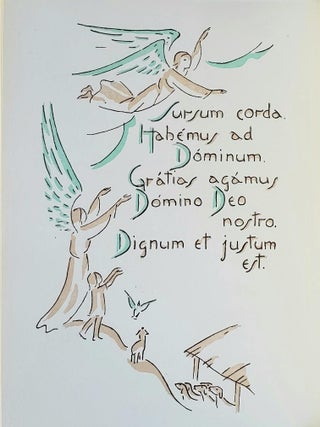 Sursum corda.
Habémus ad
Dóminum.
Grátias agámus
Dómino Deo
nostro.
Dignum et justum
est.